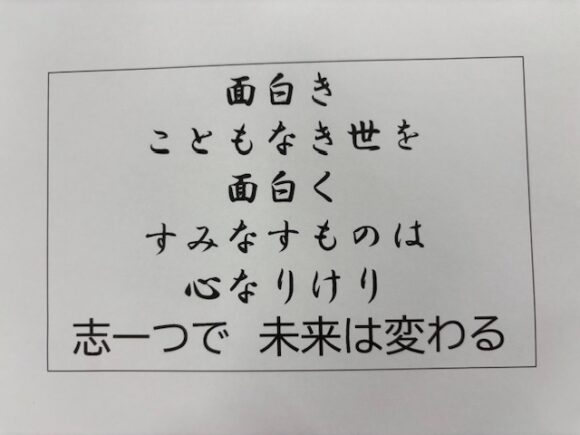 面白き
こともなき世を
面白く
すみなすものは
心なりけり
志一つで 未来は変わる